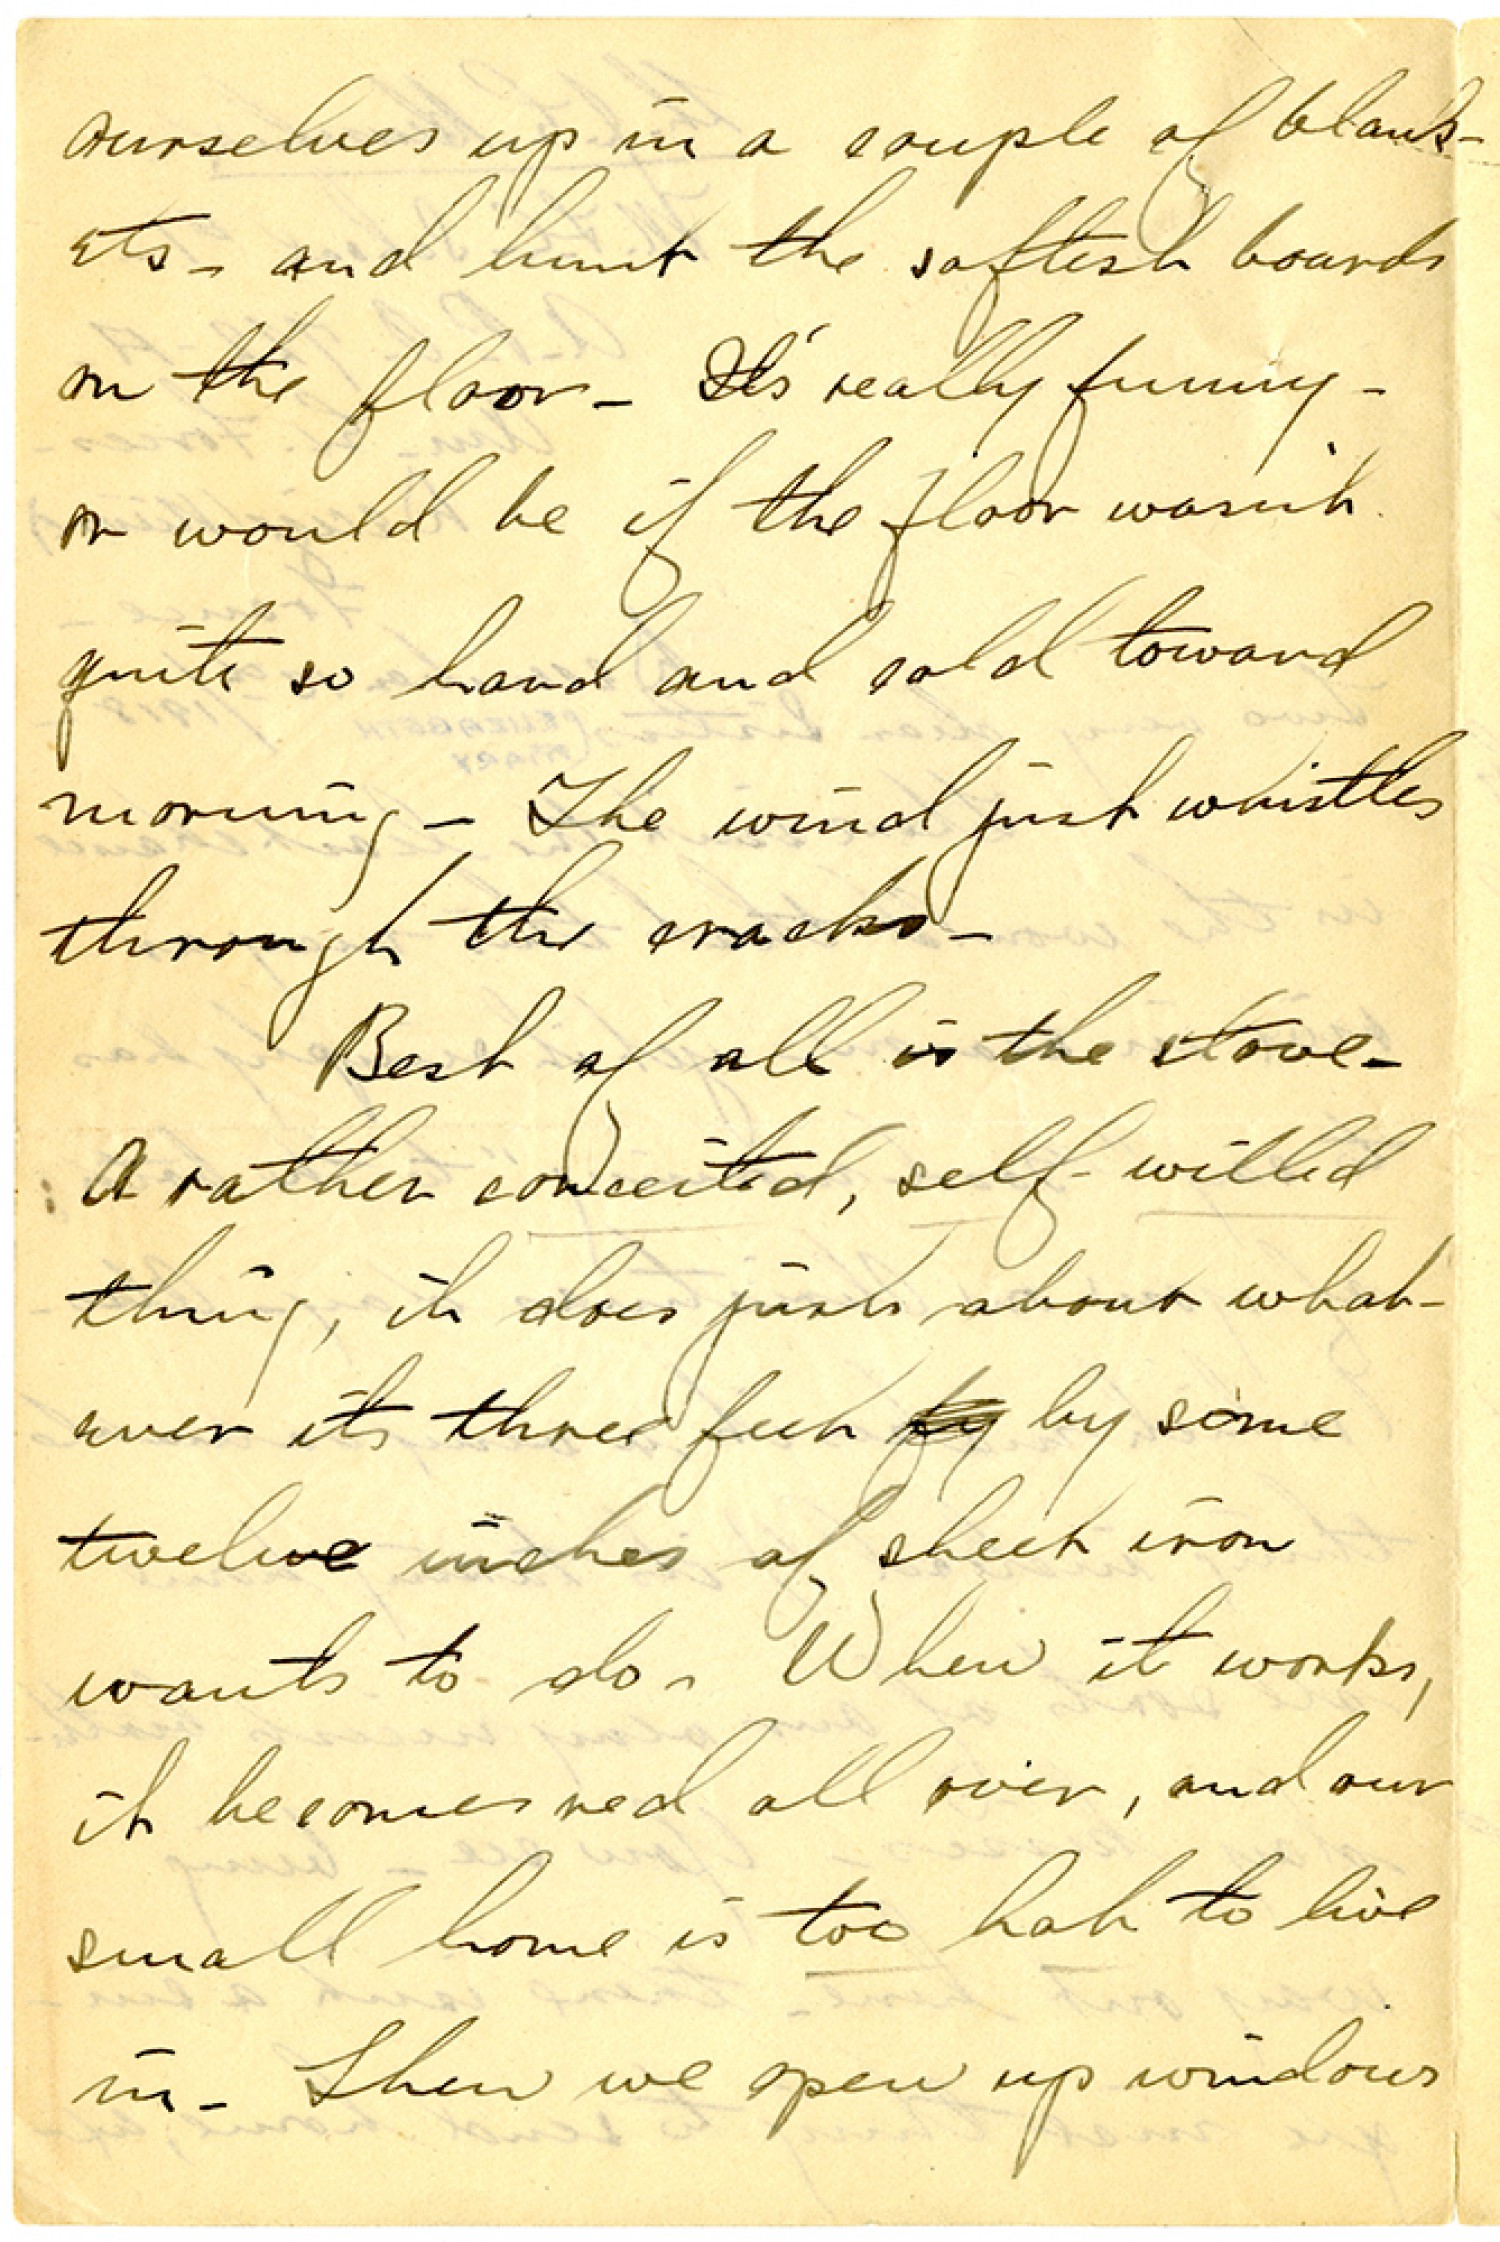 ourselves up in a couple of blank-
ets - and hunt the softest boards
on the floor - It's really funny -
or would be if the floor wasn't
quite so hard and cold toward
morning - The wind just whistles
through the cracks -
Best of all is the stove -
A rather conceited, self-willed
thing, it does just about what-
ever its three feet by by some
twelve inches of sheet iron
wants to do - When it works,
it becomes red all over, and our
small home is too hot to live
in - Then we open up windows